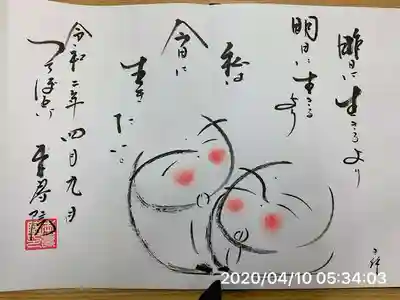 昨日に生きるより
明日に生きるより
私は
今日に
生き
たい。
令和二年四月九日
2020/04/10 05:34:03